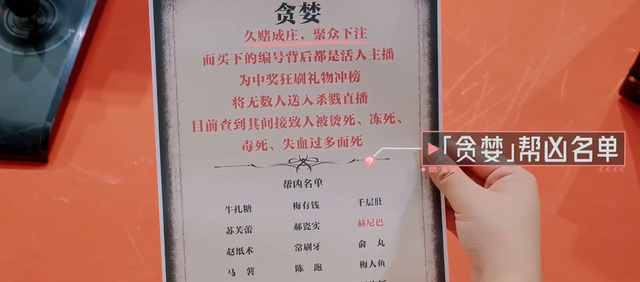 贪婪
久赌成庄,聚众下注
而买下的编号背后都是活人主播
为中奖狂刷礼物冲榜
将无数人送入杀戮直播
目前查到其间接致人被烫死、冻死、
毒死、失血过多而死
「贪婪」帮凶名单
帮凶名单
牛扎糖 梅有钱 千层肚
苏芙蕾 郝瓷实 赫尼巴
赵纸术 常刷牙 俞丸
马蓉 陈跑 梅人鱼